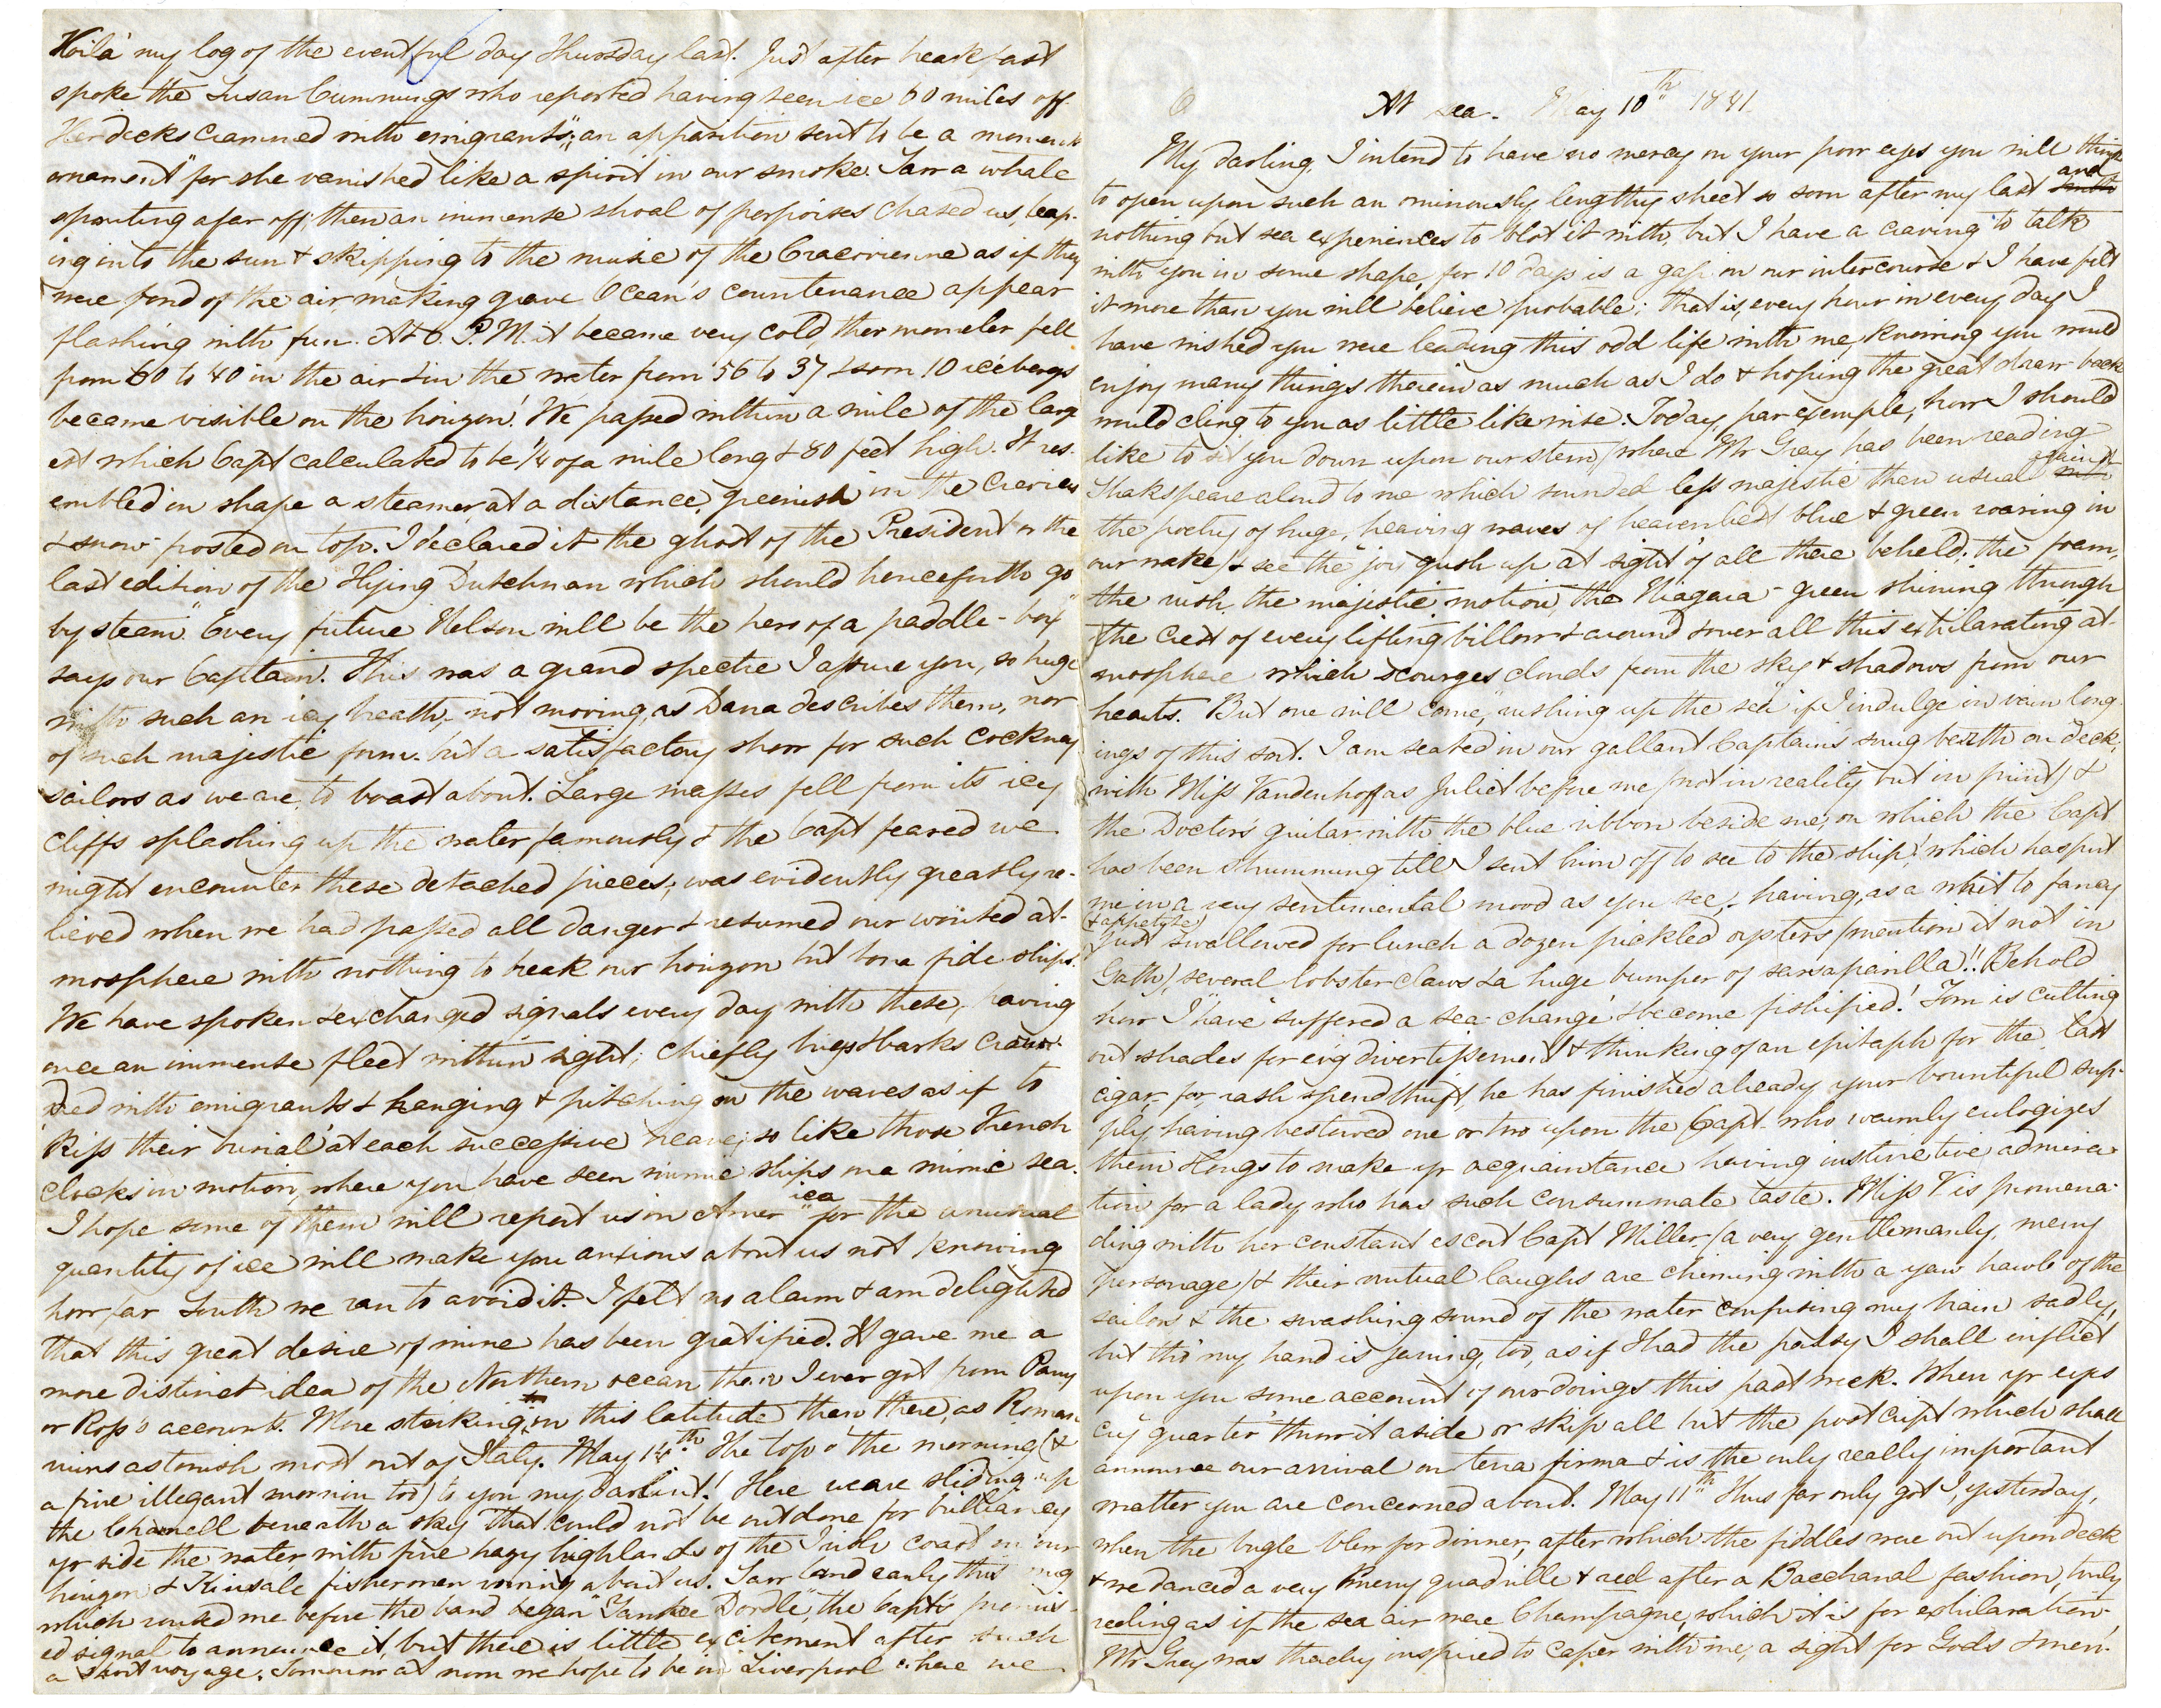 At sea. May 10th 1841.
My darling, I intend to have no mercy on your poor eyes you will think
to open upon such an ominously lengthy sheet so soon after my last and
nothing but sea experiences to blot it with, but I have a craving to talk
with you in some shape, for 10 days is a gap in our intercourse & I have felt
it more than you will believe probable; that is, every hour in every day I
have wished you were leading this odd life with me, knowing you would
enjoy many things therein as much as I do & hoping the great draw-back
would cling to you as little likewise. Today, par exemple, how I should
like to sit you down upon our stern (where Mr Gray has been reading
Shakspeare aloud to me which sounded less majestic than usual against
the poetry of huge, heaving waves of heavenliest blue & green roaring in
our wake) & see the "joy gush up at sight" of all there beheld; the foam,
the rush, the majestic motion, the Niagara-green shining through
the crest of every lifting billow & around & over all this exhilarating at-
mosphere which scourges clouds from the sky & shadows from our
hearts. But one will come, "rushing up the sea" if I indulge in vain long-
ings of this sort. I am seated in our gallant Captain's snug berth on deck,
with Miss Vandenhoff as Juliet before me (not in reality but in print) &
the Doctor's guitar with the blue ribbon beside me, on which the Capt
has been strumming till I sent him off to see to the ship! which has put
me in a very sentimental mood as you see, having, as a whet to fancy
(& appetite)
just swallowed for lunch a dozen pickled oysters (mention it not in
Gath), several lobster claws & a huge bumper of sarsaparilla!! Behold
how I have "suffered a sea-change" & become fishified! Tom is cutting
out shades for evg divertissement & thinking of an epitaph for the last
cigar- for, rash spendthrift, he has finished already your bountiful sup-
ply, having bestowed one or two upon the Capt- who warmly eulogizes
them & longs to make yr acquaintance having instinctive admira-
tion for a lady who has such consummate taste. Miss V is promena-
ding with her constant escort Capt Miller (a very gentlemanly, merry
personage) & their mutual laughs are chiming with a yaw hawle of the
sailors & the swashing sound of the water confusing my brain sadly,
but tho' my hand is jerking, too, as if I had the palsy I shall inflict
upon you some account of our doings this past week. When yr eyes
cry quarter throw it aside or skip all but the postcript which shall
announce our arrival on terra firma & is the only really important
matter you are concerned about. May 11th Thus far only got I, yesterday,
when the bugle blew for dinner, after which the fiddles were out upon deck
& we danced a very merry quadrille & reel after a Bacchanal fashion, truly
reeling as if the sea air were Champagne, which it is for exhilaration.
Mr Gray was thereby inspired to caper with me, a sight for Gods & men.
Voilà my log of the eventful day Thursday last. Just after breakfast
spoke the Susan Cummings who reported having seen ice 60 miles off.
Her decks crammed with emigrants; "an apparition sent to be a moment's
ornament" for she vanished like a spirit in our smoke. Saw a whale
spouting afar off; then an immense shoal of porpoises chased us, leap-
ing into the sun & skipping to the music of the Cracovienne as if they
were fond of the air, making grave Ocean's countenance appear
flashing with fun. At 6. P.M. it became very cold, thermometer fell
from 60 to 40 in the air & in the water from 56 to 37 & soon 10 icebergs
became visible on the horizon! We passed within a mile of the larg-
est which Capt calculated to be 1/4 of a mile long & 80 feet high. It res-
embled in shape a steamer at a distance, greenish in the crevices
& snow-frosted on top. I declared it the ghost of the President or the
last edition of the "Flying Dutchman which should henceforth go
by steam". "Every future Nelson will be the hero of a paddle-box"
says our Captain. This was a grand spectre I assure you, so huge
with such an icy breath, not moving, as Dana describes them, nor
of such majestic form. but a satisfactory show for such cockney
sailors as we are, to boast about. Large masses fell from its icy
cliffs splashing up the water famously & the Capt feared we
might encounter these detached pieces; was evidently greatly re-
lieved when we had passed all danger & resumed our wonted at-
mosphere with nothing to break our horizon but bona fide ships.
We have spoken & exchanged signals every day with these, having
once an immense fleet within sight; chiefly brigs & barks crow-
ded with emigrants & hanging & pitching on the waves as if to
'Kiss their burial' at each successive heave; so like those French
clocks in motion, where you have seen mimic ships on a mimic sea.
I hope some of them will report us in America for the unusual
quantity of ice will make you anxious about us not knowing
how far South we ran to avoid it. I felt no alarm & am delighted
that this great desire of mine has been gratified. It gave me a
more distinct idea of the Northern ocean than I ever got from Parry
or Ross's accounts. More striking in this latitude than there, as Roman
ruins astonish most out of Italy. May 14th The top o' the morning (&
a fine illegant mornin too) to you my darlint! Here we are sliding up
the Channell beneath a sky that could not be outdone for brilliancy
yr side the water, with fine hazy highlands of the Irish coast on our
horizon & Kinsale fishermen rowing about us. Saw land early this mng
which roused me before the band began "Yankee Doodle", the Capt's promis-
ed signal to announce it, but there is little excitement after such
a short voyage. Tomorrow at noon we hope to be in Liverpool where we